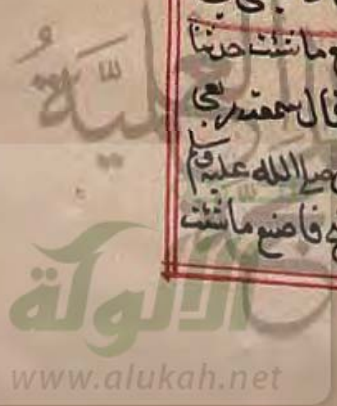 ما شئت حدثنا
قال سمعت ربعي
صلى الله عليه وسلم
فاصنع ما شئت
العلمية
الألوكة
www.alukah.net